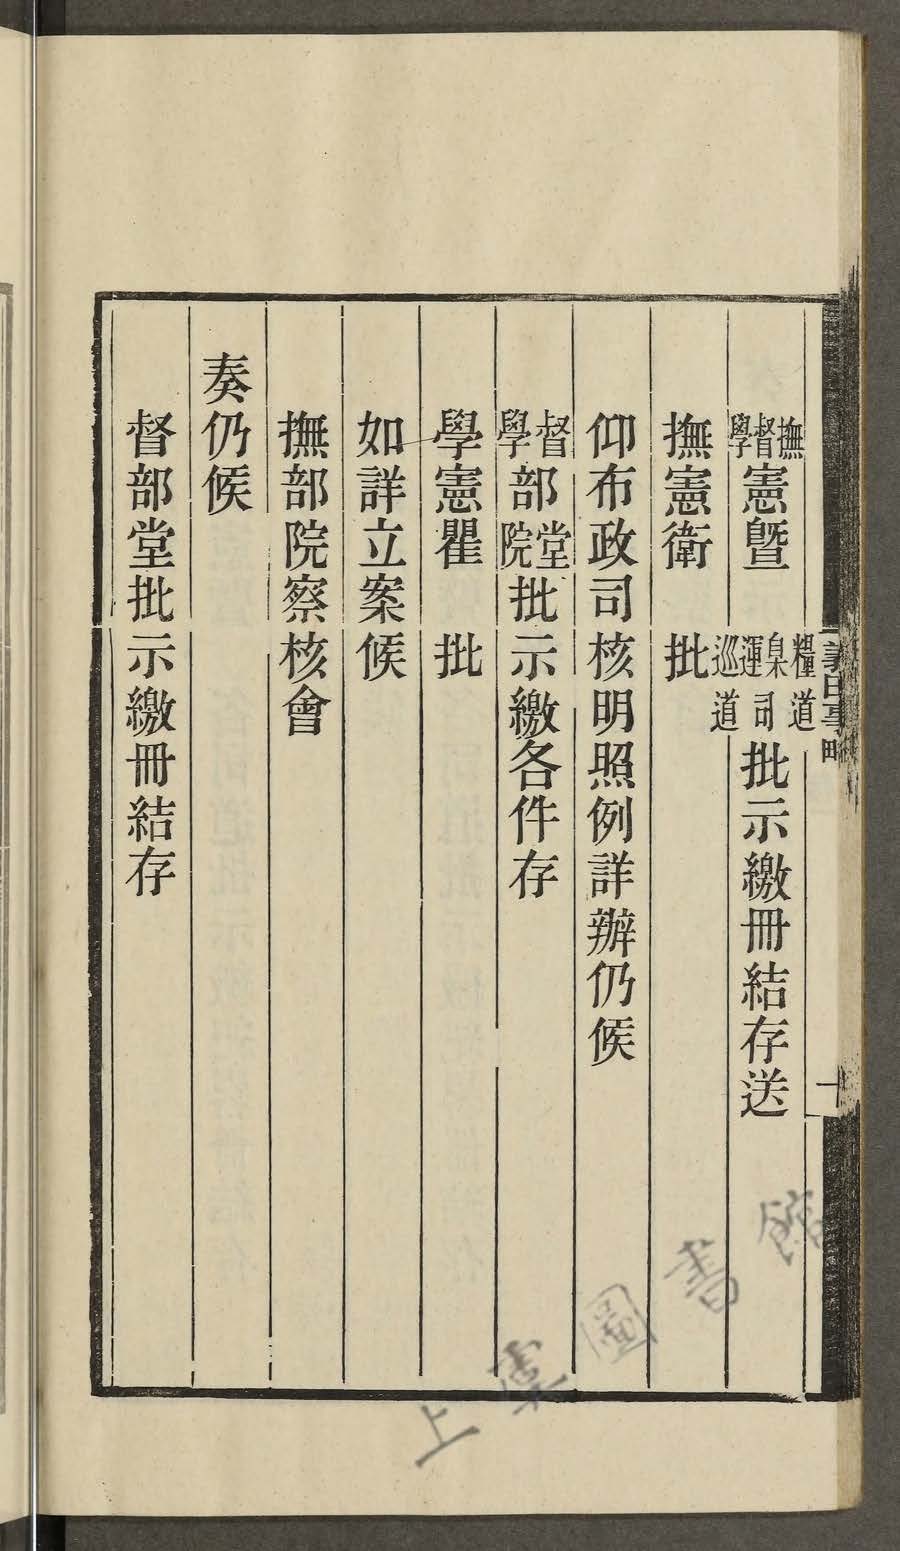 撫督學憲曁糧道臬運司巡道批示繳冊結存送
撫憲衛　批
仰布政司核明照例詳辦仍候
督學部堂院批示繳各件存
學憲瞿　批
如詳立案候
撫部院察核會
奏仍候
督部堂批示繳冊結存
義田事略
十
上虞圖書館